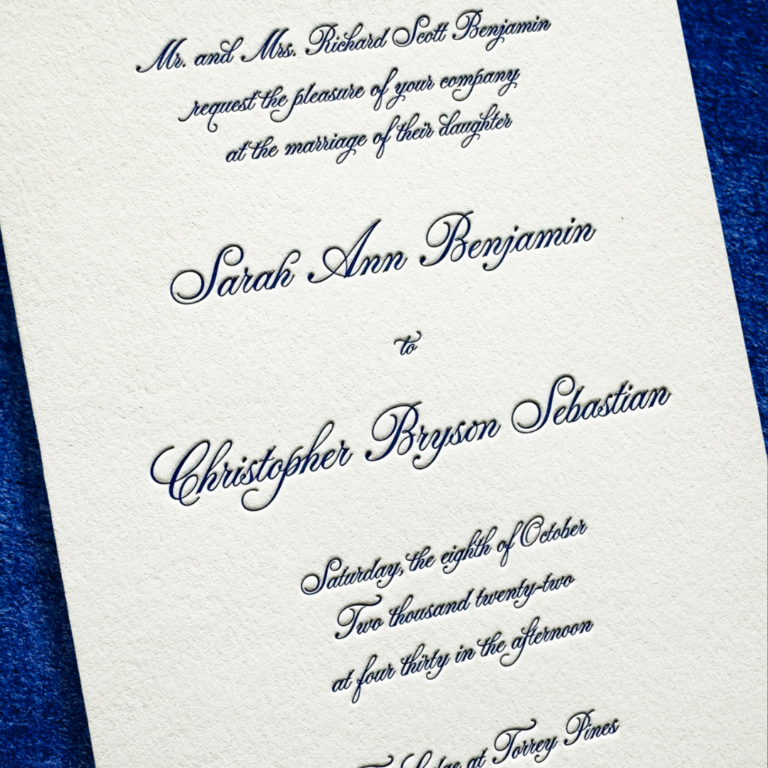 Mr. and Mrs. Richard Scott Benjamin
request the pleasure of your company
at the marriage of their daughter
Sarah Ann Benjamin
to
Christopher Bryson Sebastian
Saturday, the eighth of October
Two thousand twenty-two
at four thirty in the afternoon
at Torrey Pines